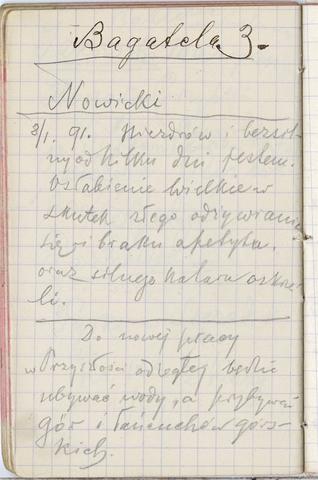 Bagatela 3.
Nowicki
3/1. 91. Niezdrów i bezsil-
ny od kilku dni jestem.
Osłabienie wielkie w
skutek złego odżywiania
się i braku apetytu.
oraz silnego kataru oskrze-
li.
Do nowej pracy
w Przyszłości odległej będzie
ubywać wody, a przybywać
gór i łańcuchów górs-
kich.